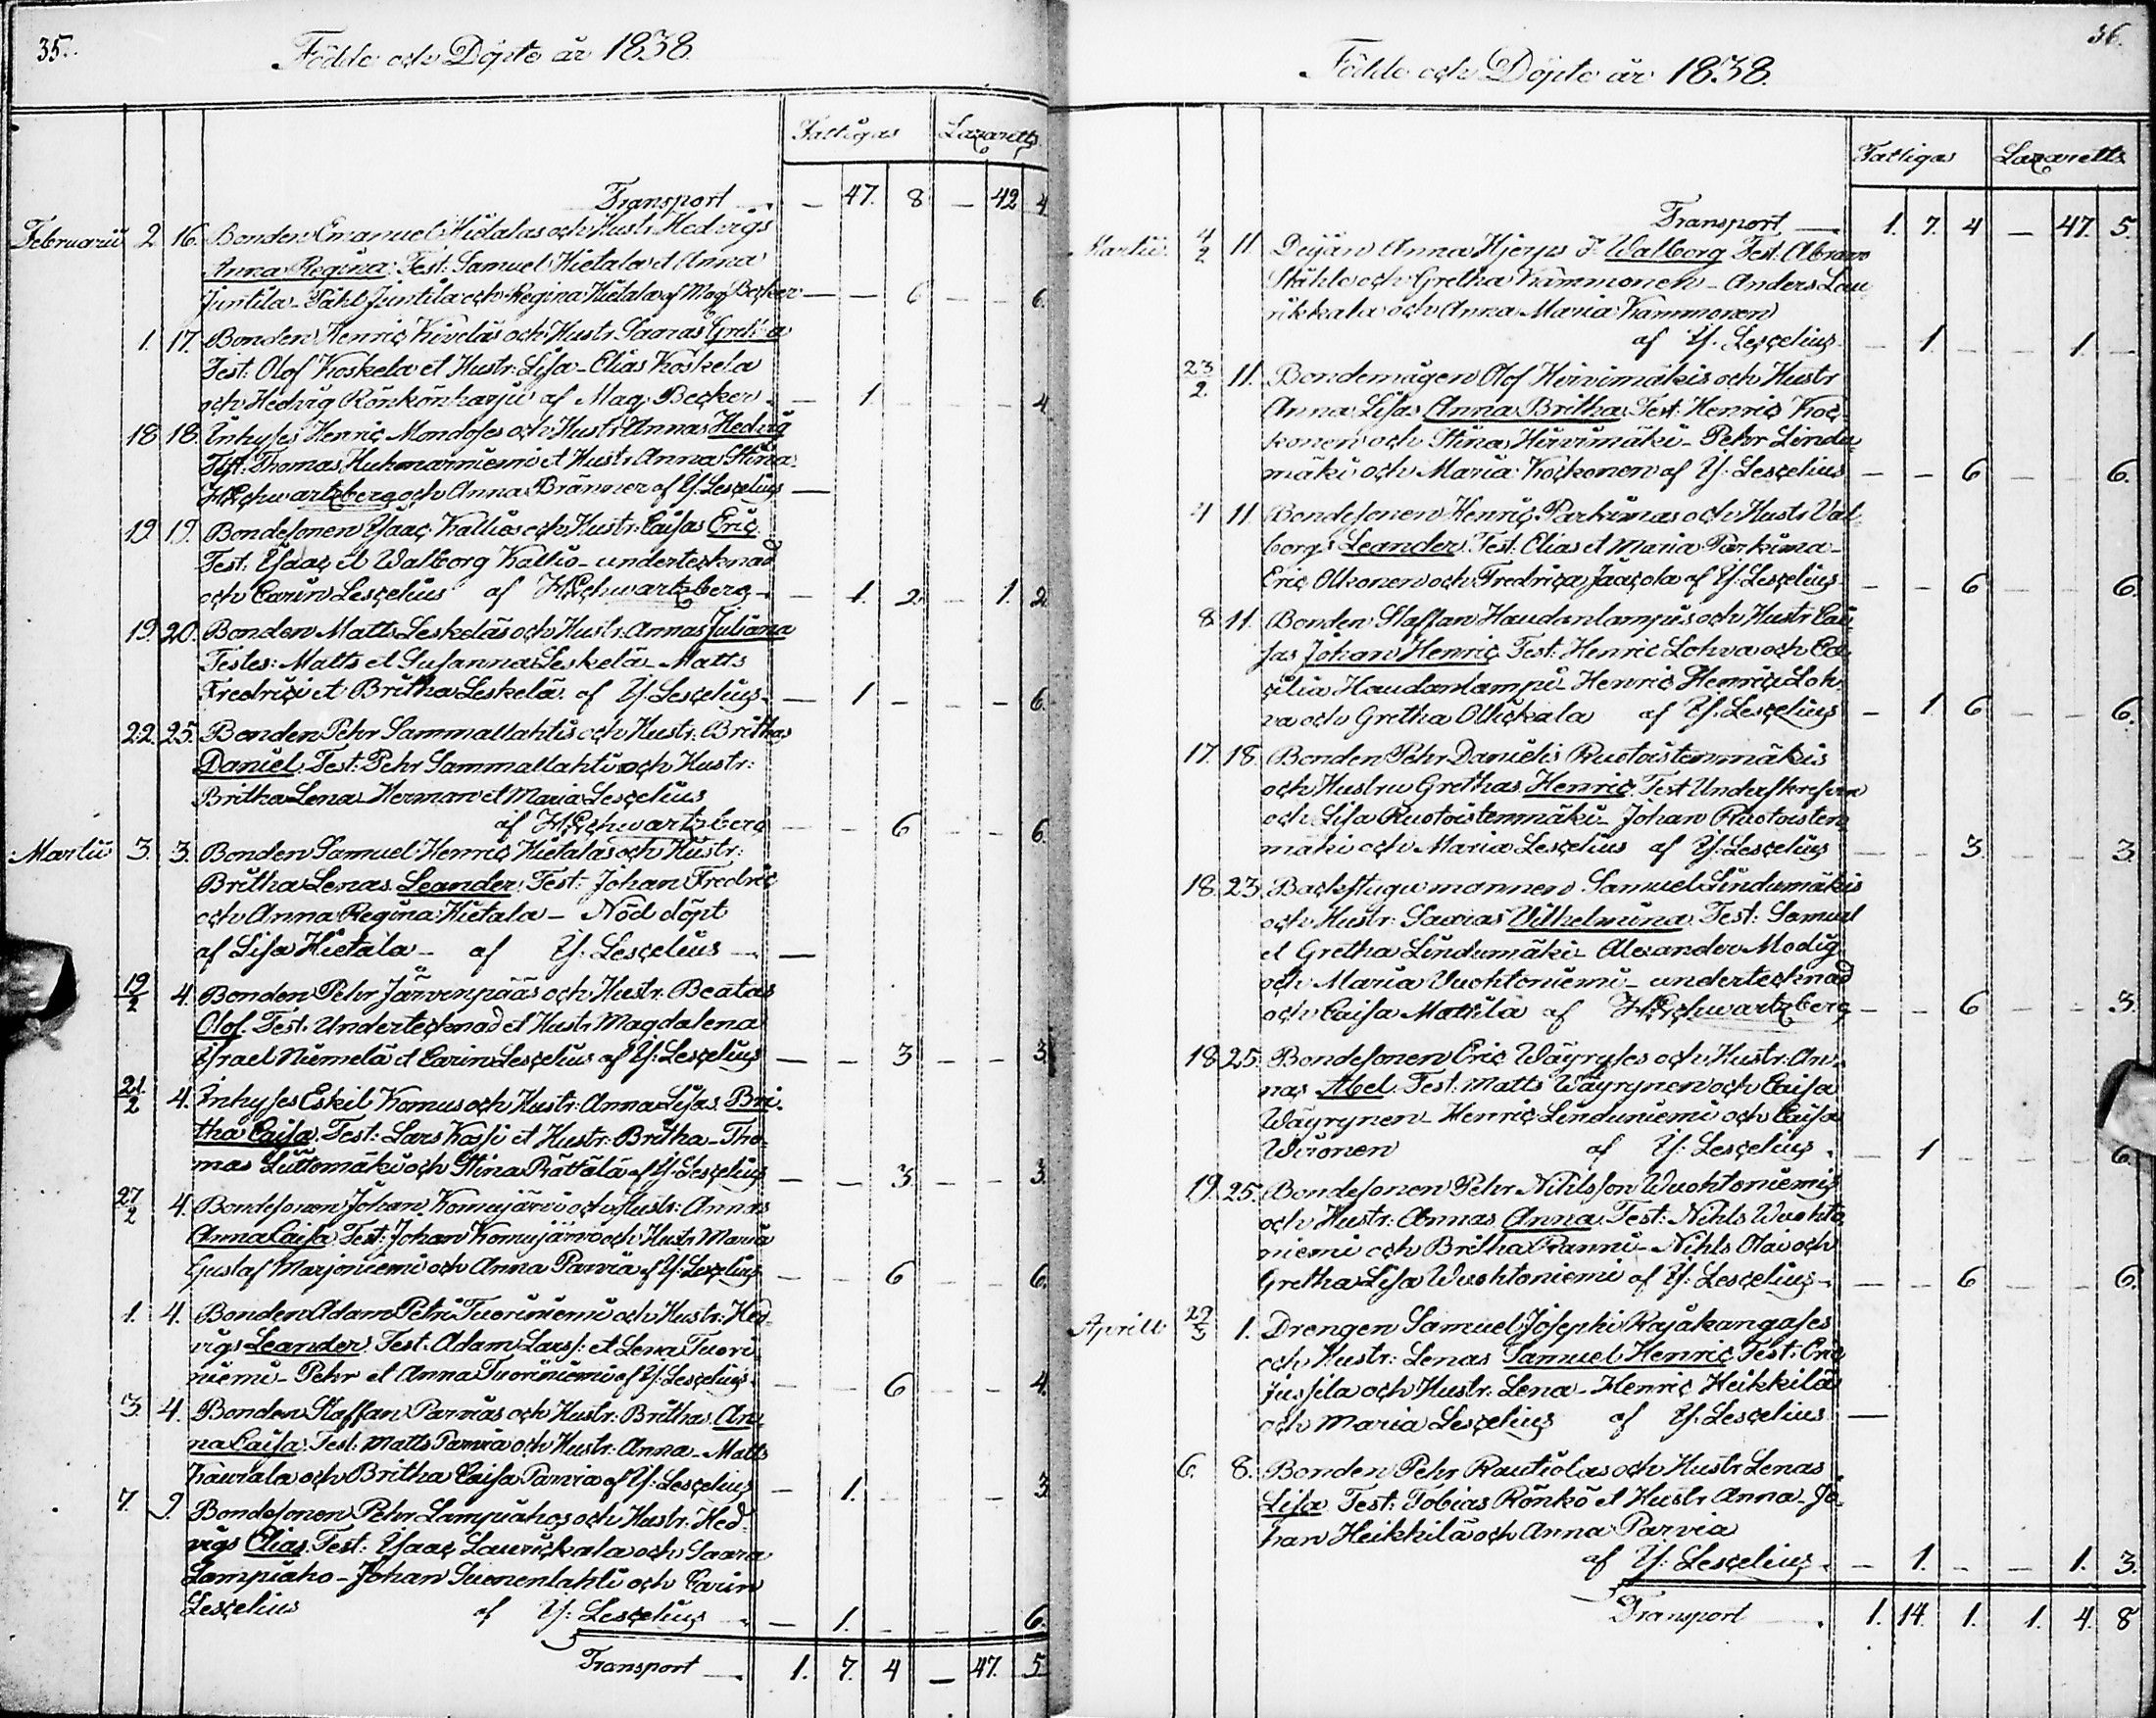 35.
Födde och Döpte år 1838.
Fattigas Lazaretts.
Transport — 47. 8 — 42 4.
Februarii 2 16. Bonden Emanuel Hietalas och Hustr. Hedvigs
Anna Regina. Test: Samuel Hietala et Anna
Juntila - Påhl Juntila och Regina Hietala af Mag. Becker — — 6 — — 6.
1. 17. Bonden Henric Kiveläs och Hustr. Saaras Gretha
Test: Olof Koskela et Hustr: Lisa - Elias Koskela
och Hedvig Rönkönharju af Mag: Becker. — 1. — — — 4
18 18. Inhyses Henric Mondoses och Hustr. Annas Hedvig
Test: Thomas Huhmarniemi et Hustr. Anna Stina
H: Schwartzberg och Anna Bränner af Y: Lescelius —
19 19. Bondesonen Ysaac Kallios och Hustr: Caisas Eric
Test. Ysaac et Walborg Kallio - undertecknad
och Carin Lescelius af H: Schwartzberg — 1. 2 — 1. 2
19. 20. Bonden Matts Leskeläs och Hustr: Annas Juliana
Testes: Matts et Susanna Leskelä - Matts
Fredrici et Britha Leskelä. af Y: Lescelius — 1 — — — 6.
22. 25. Bonden Pehr Sammallahtis och Hustr. Brithas
Daniel. Test: Pehr Sammallahti och Hustr:
Britha Lena - Herman et Maria Lescelius
af H: Schwartzberg — — 6 — — 6.
Martii 3. 3. Bonden Samuel Henric Hietalas och Hustr:
Britha Lenas Leander. Test: Johan Fredric
och Anna Regina Hietala - Nöd döpt
af Lisa Hietala - af Y: Lescelius —
19/2 4. Bonden Pehr Järvenpääs och Hustr. Beatas
Olof. Test. Undertecknad et Hustr. Magdalena
Ysrael Niemelä et Carin Lescelius af Y: Lescelius — — 3 — — 3
21/2 4. Inhyses Eskil Komus och Hustr: Anna Lisas Bri-
tha Caisa. Test: Lars Kassi et Hustr: Britha - Tho-
mas Luttomäki och Stina Prättälä af Y: Lescelius — — 3 — — 3.
27/2 4. Bondesonen Johan Komujärvi och Hustr: Annas
Anna Caisa. Test: Johan Komujärvi och Hustr Maria
Gustaf Marjoniemi och Anna Parvia af Y: Lescelius — — 6 — — 6.
1. 4. Bonden Adam Petri Tuoriniemi och Hustr: Hed-
vigs Leander. Test. Adam Larss: et Lena Tuori-
niemi - Pehr et Anna Tuoriniemi af Y: Lescelius — — 6 — — 4.
3. 4. Bonden Staffan Parvias och Hustr: Brithas An-
na Caisa. Test: Matts Parvia och Hustr. Anna - Matts
och Britha Caisa Parvia af Y: Lescelius — 1. — — — 3
7. 9. Bondesonen Pehr Lampiahos och Hustr: Hed-
vigs Elias. Test: Ysaac Laurickala och Saara
Lampiaho - Johan Suonenlahti och Carin
Lescelius af Y: Lescelius — 1. — — — 6.
Transport — 1. 7. 4 — 47. 5
36.
Födde och Döpte år 1838.
Fattigas Lazaretts
Transport — 1. 7. 4 — 47. 5.
Martii. 4/2 11. Deijän Anna Hjerps F. Walborg Test. Abram
Ståhle och Gretha Kämmonen - Anders Lau-
rikkala och Anna Maria Kammonen
af Y. Lescelius — 1. — — 1. —
23/2. 11. Bondemågen Olof Hirvimäkis och Hustr
Anna Lisas Anna Britha. Test: Henric Koc-
konen och Stina Hirvimäki - Pehr Lindu-
mäki och Maria Kockonen af Y: Lescelius — — 6 — — 6.
4 11. Bondesonen Henric Parkimas och Hustr Val-
borgs Leander. Test: Elias et Maria Parkima -
Eric Olkonen och Fredrica Jaacola af Y: Lescelius — — 6 — — 6.
8 11. Bonden Staffan Haudanlampis och Hustr Cai-
sas Johan Henric Test: Henric Lohva och Ce-
cilia Haudanlampi - Henric Henrici Loh-
va och Gretha Ollickala af Y. Lescelius — 1. 6 — — 6.
17. 18. Bonden Pehr Danielis Ruotoistenmäkis
och Hustru Grethas Henric Test Underskrefven
och Lisa Ruotoistenmäki - Johan Ruotoisten-
mäki och Maria Lescelius af Y: Lescelius — — 3 — — 3
18. 23. Backstugu mannen Samuel Lindumäkis
och Hustr: Saaras Vilhelmina. Test: Samuel
et Gretha Lindumäki - Alexander Modig
och Maria Vuohtoniemi - undertecknad
och Caisa Mattila af H: Schwartzberg — — 6 — — 3.
18. 25. Bondesonen Eric Wäyryses och Hustr: An-
nas Abel. Test: Matts Wäyrynen och Caisa
Wäyrynen - Henric Linduniemi och Caisa
Wironen af Y: Lescelius. — 1 — — — 6.
19. 25. Bondesonen Pehr Nihlsson Wuohtoniemis
och Hustr: Annas Anna. Test: Nihls Wuohto-
niemi och Britha Pranni - Nihls Olai och
Gretha Lisa Wuohtoniemi af Y: Lescelius — — 6 — — 6.
Aprill 29/3 1. Drengen Samuel Josephi Rajakangases
och Hustr: Lenas Samuel Henric Test: Eric
Jussila och Hustr: Lena - Henric Heikkilä
och Maria Lescelius af Y: Lescelius —
6. 8. Bonden Pehr Rautiolas och Hustr Lenas
Lisa Test: Tobias Rönkö et Hustr Anna - Jo-
han Heikkilä och Anna Parvia
af Y: Lescelius. — 1. — — 1. 3.
Transport — 1. 14. 1. 1. 4. 8